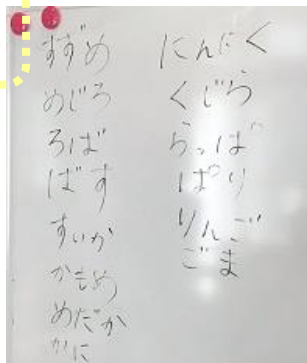 すずめ
めじろ
ろば
ばす
すいか
かもめ
めだか
かに
にんにく
くじら
らっぱ
ぱり
りんご
ごま